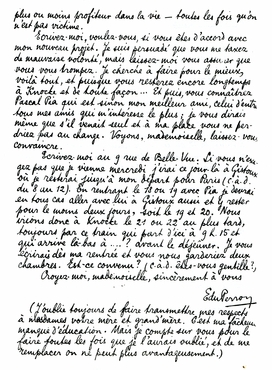 plus ou moins profiteur dans la vie — toutes les fois qu'on
n'est pas victime.
Ecrivez-moi, voulez-vous, si vous êtes d'accord avec
mon nouveau projet. Je suis persuadé que vous me taxez
de mauvaise volonté, mais laissez-moi vous assurer que
vous vous trompez. Je cherche à faire pour le mieux,
voilà tout, et puisque vous resterez encore longtemps
à Knocke et de toute façon... Et puis, vous connaîtrez
Pascal Pia qui est sinon mon meilleur ami, celui d'entre
tous mes amis qui m'intéresse le plus; je vous dirais
même que s'il venait seul et à ma place vous ne per-
driez pas au change. Voyons, mademoiselle, laissez-vous
convaincre.
Ecrivez-moi au 9 rue de Belle-Vue. Si vous n'exi-
gez pas que je vienne mercredi j'irai ce jour-là à Gistoux
où je resterai jusqu'à mon départ pour Paris (c.à.d.
du 8 au 12). En rentrant le 18 ou 19 avec Pia je devrai
en tous cas aller avec lui à Gistoux aussi et y rester
pour le moins deux jours, soit le 19 et 20. Nous
irions donc à Knocke le 21 ou 22 au plus tard,
toujours par ce train qui part d'ici à 9 h. 15 et
qui arrive là-bas à ....? avant le déjeuner. Je vous
écrirai dès ma rentrée et vous nous garderiez deux
chambres. Est-ce convenu? (c.à.d. êtes-vous gentille?)
Croyez-moi, mademoiselle, sincèrement à vous
EduPerron
(J'oublie toujours de faire transmettre mes respects
à Mesdames votre mère et grand'mère. C'est un fâcheux
manque d'éducation. Mais je compte sur vous pour le
faire toutes les fois que je l'aurais oublié, et de me
remplacer on ne peut plus avantageusement.)